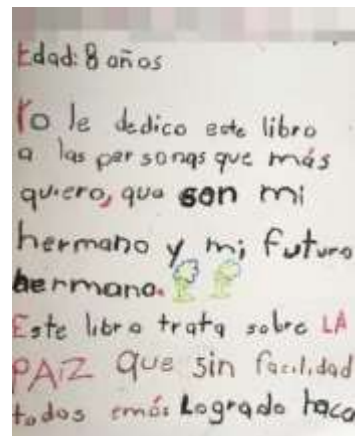 Edad: 8 años
Yo le dedico este libro
a las personas que más
quiero, que son mi
hermano y mi futuro
hermano.
Este libro trata sobre LA
PAZ que sin facilidad
todos emós Logrado hace